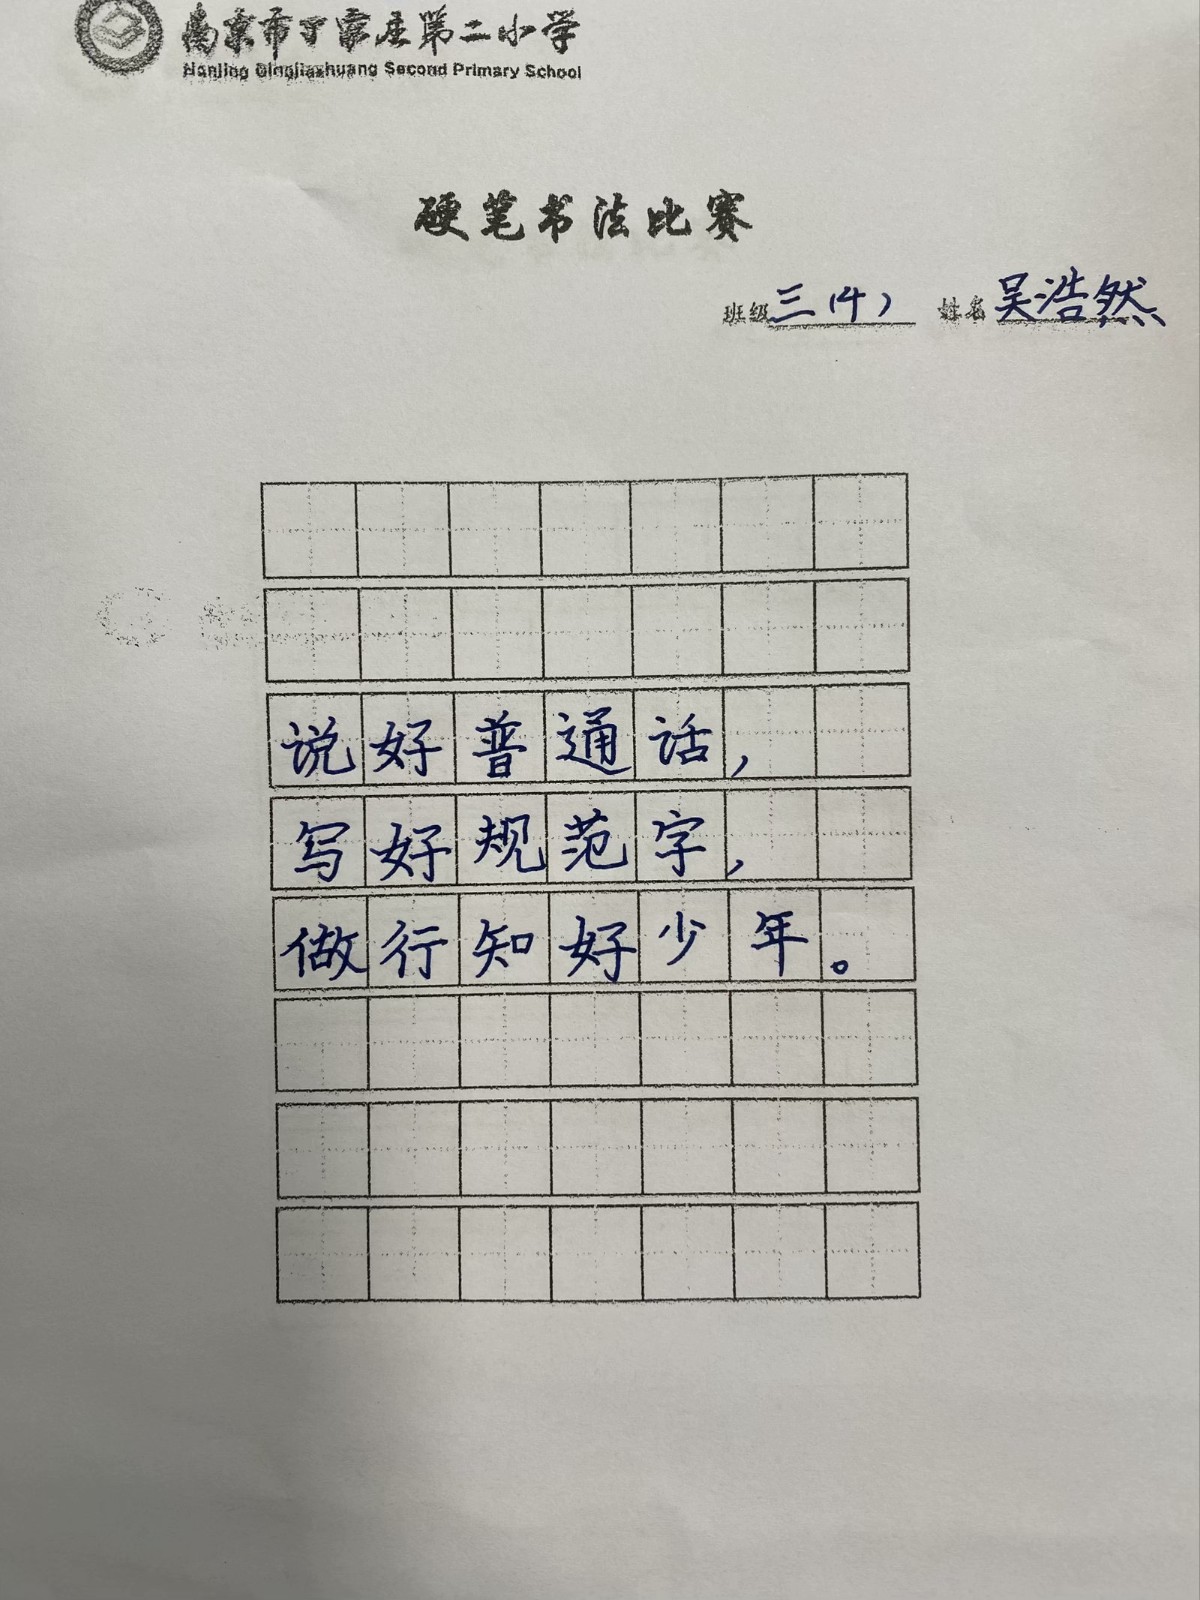 南京市丁家庄第二小学
Nanjing Dingjiazhuang Second Primary School
硬笔书法比赛
班级三(4) 姓名吴浩然
说好普通话，
写好规范字，
做行知好少年。